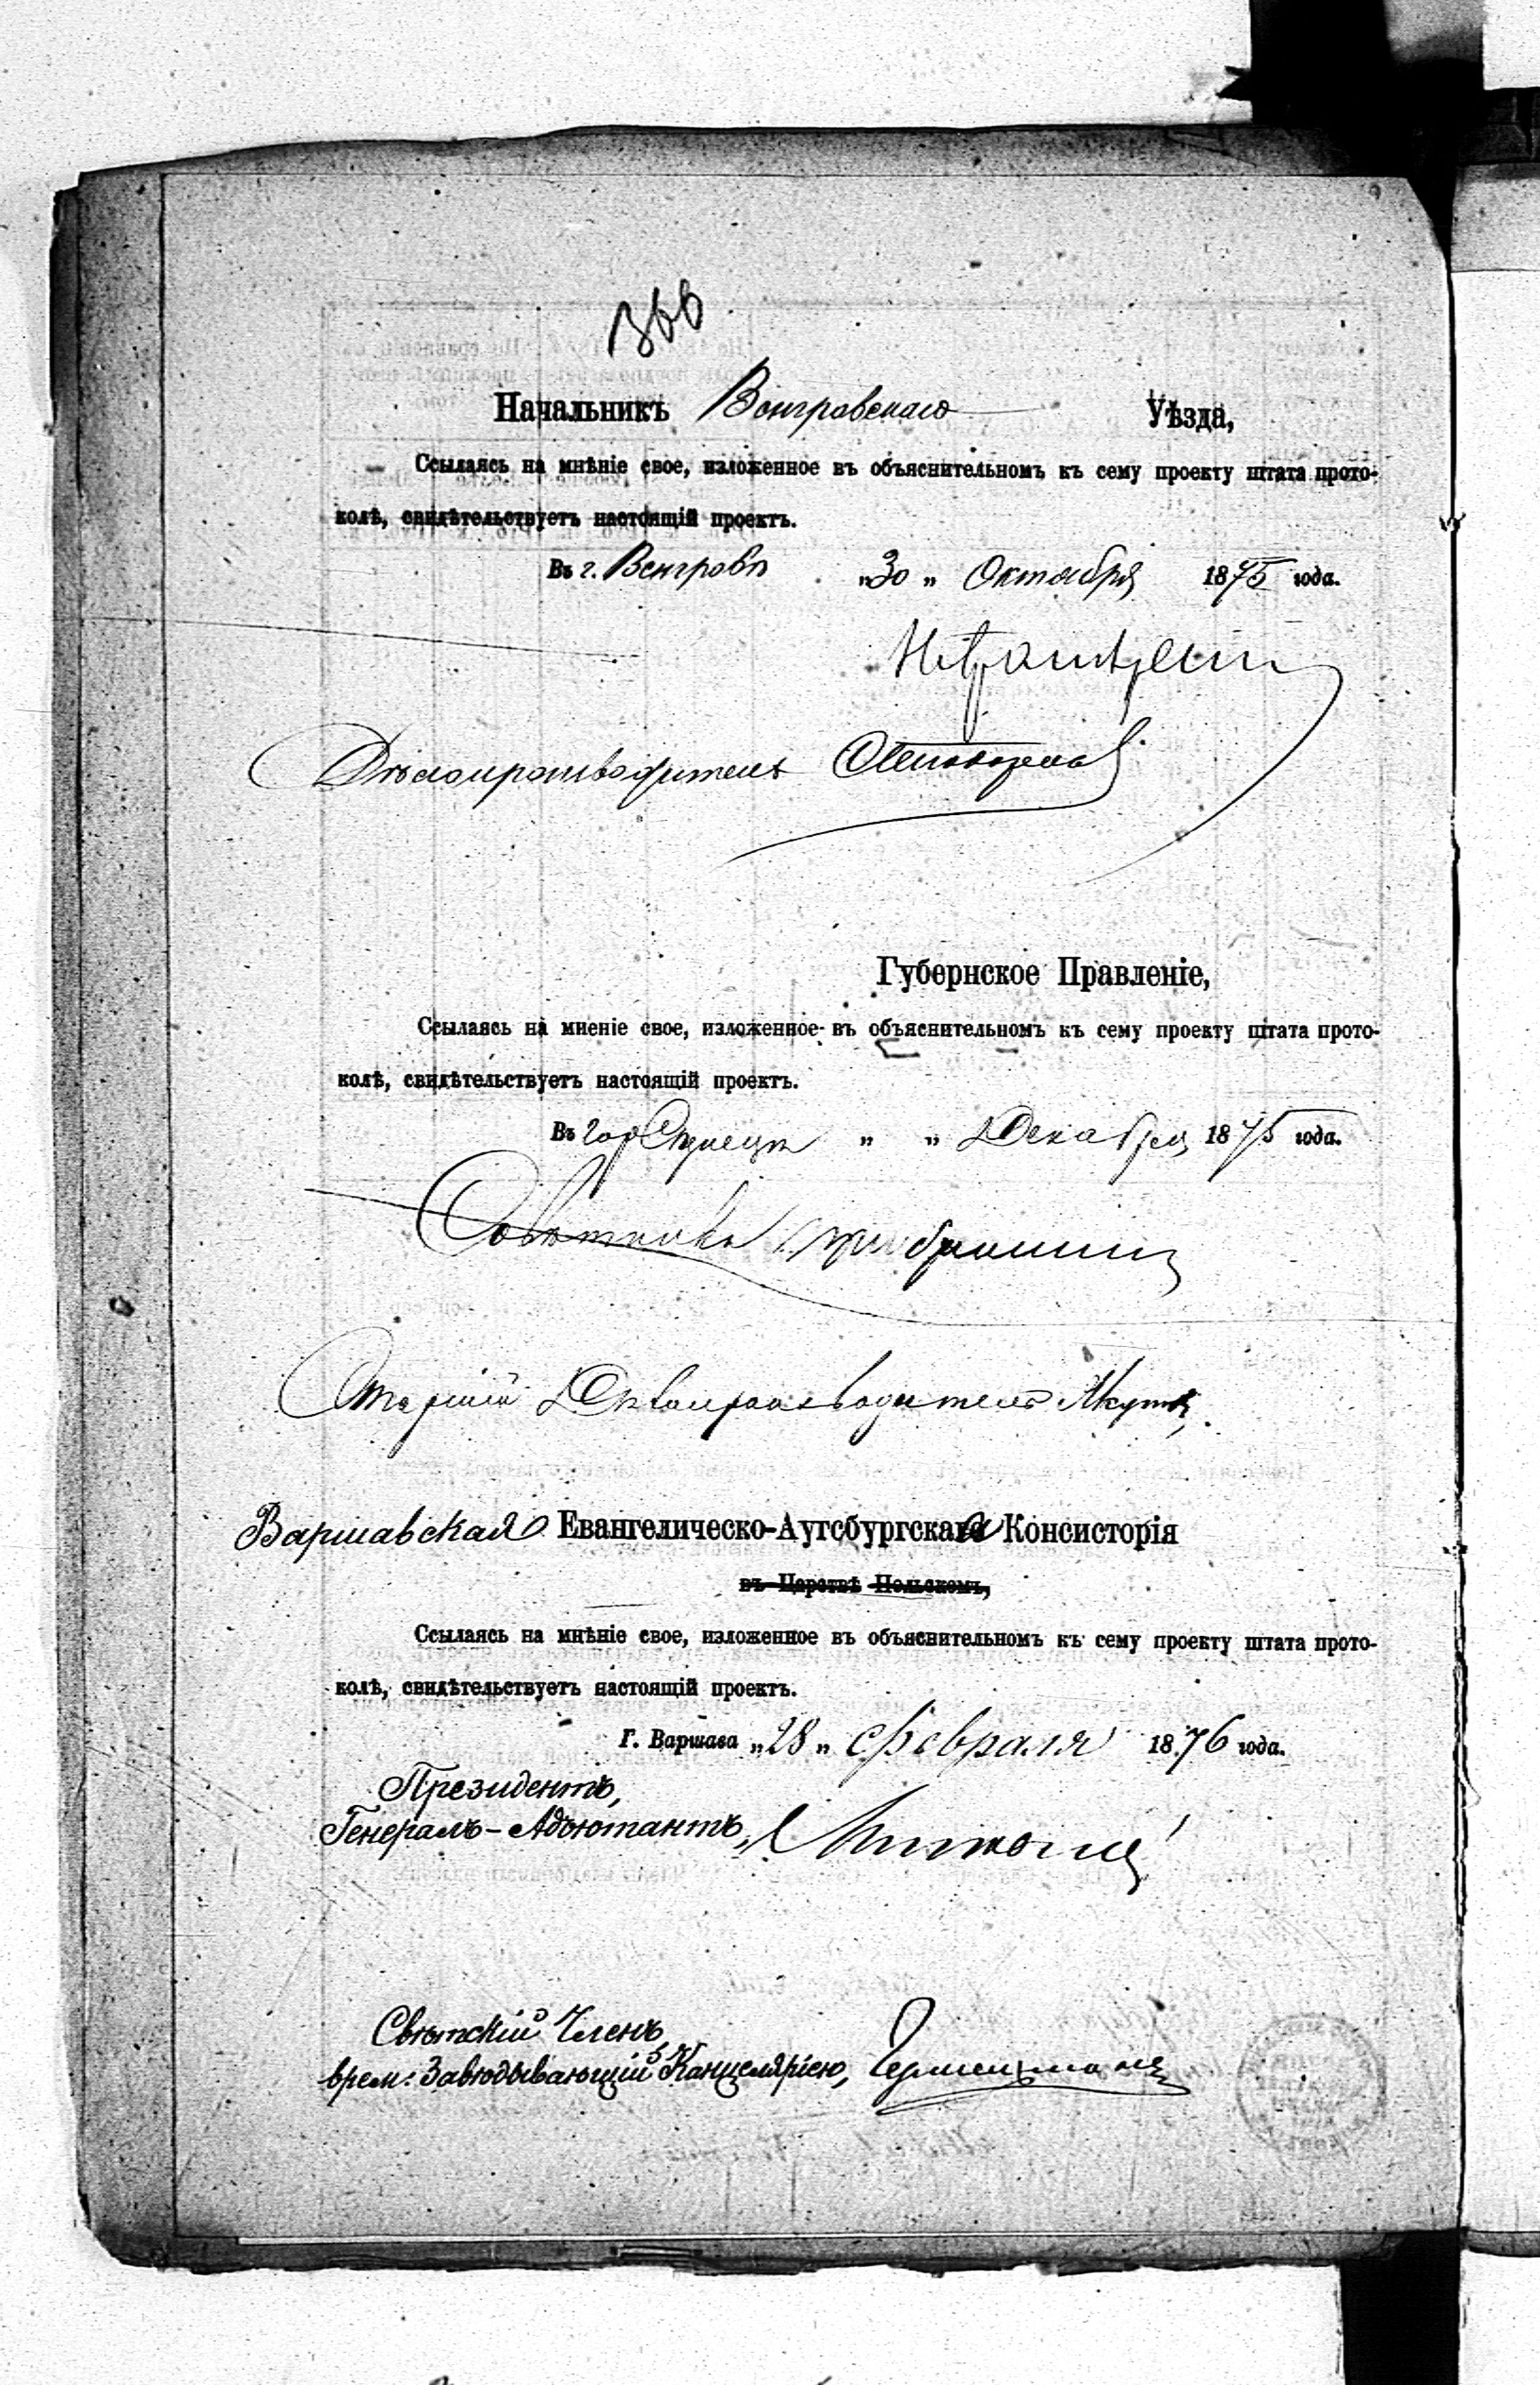 366
Начальникъ Венгровскаго Уѣзда,
Ссылаясь на мнѣніе свое, изложенное въ объяснительномъ къ сему проекту штата прото-
колѣ, свидѣтельствуетъ настоящій проектъ.
Въ г. Венгровѣ „30„ Октября 1875 года.
Дѣлопроизводитель
Губернское Правленіе,
Ссылаясь на мненіе свое, изложенное въ объяснительномъ къ сему проекту штата прото-
колѣ, свидѣтельствуетъ настоящій проектъ.
Въ гор Сѣдлецѣ „ „ Декабря 1875 года.
Совѣтникъ
Старшій Дѣлопроизводитель
Варшавская Евангелическо-Аугсбургская Консисторія
въ Царствѣ Польскомъ,
Ссылаясь на мнѣніе свое, изложенное въ объяснительномъ къ сему проекту штата прото-
колѣ, свидѣтельствуетъ настоящій проектъ.
Г. Варшава „28„ Февраля 1876 года.
Президентъ,
Генералъ-Адъютантъ,
Свѣтскій Членъ,
врем: Завѣдывающій Канцеляріею,